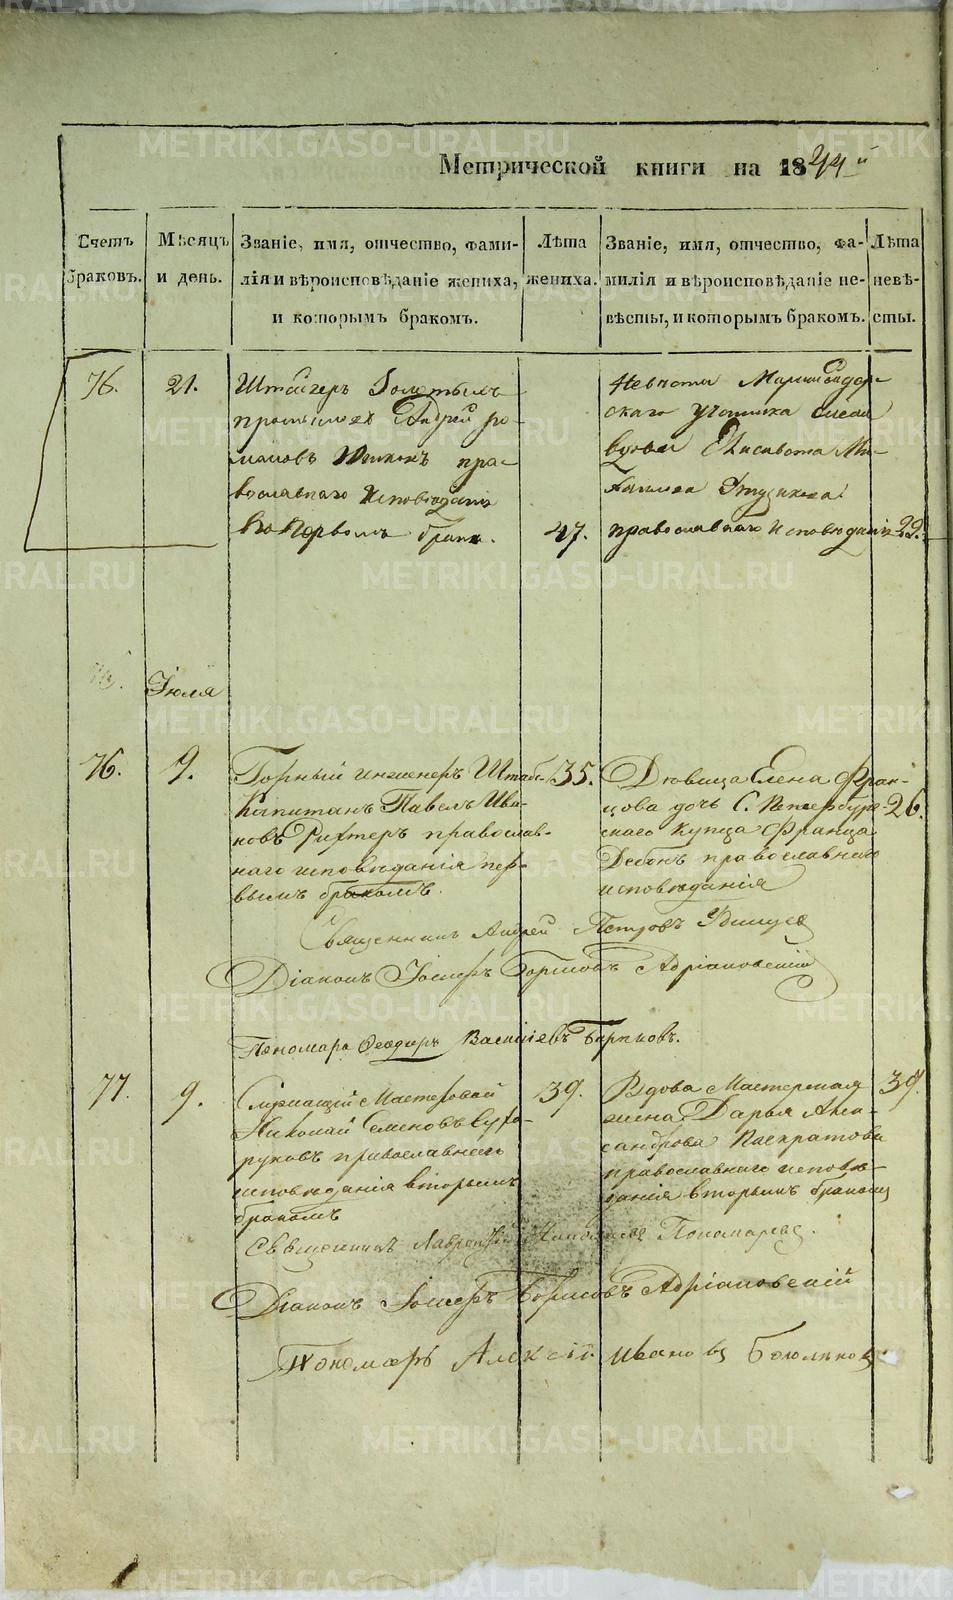 Метрической книги на 1844й
Счетъ браковъ.
Мѣсяцъ и день.
Званіе, имя, отчество, фами-
лія и вѣроисповѣданіе жениха,
и которымъ бракомъ.
Лѣта жениха.
Званіе, имя, отчество, фа-
милія и вѣроисповѣданіе не-
вѣсты, и которымъ бракомъ.
Лѣта невѣ-
сты.
76.
21.
Штейгеръ
Андрей Ро-
мановъ пра-
вославнаго исповѣданія
первымъ бракомъ.
47.
участка
вдова Елисавета Ми-
православнаго исповѣданія
22.
Іюля
76.
9.
Горный инженеръ Штабсъ
Капитанъ Павелъ Ива-
новъ Рихтеръ православ-
наго исповѣданія пер-
вымъ бракомъ.
35.
Дѣвица Елена Фран-
цова дочь С. Петербург-
скаго купца Франца
Дебонъ православнаго
исповѣданія
26.
Священникъ Андрей Петровъ Удинцев
Діаконъ Іосифъ Борисовъ Адріановскій
Пономарь Ѳеодоръ Васильевъ
77.
9.
Служащій Мастеровой
Николай Семеновъ Сухо-
руковъ православнаго
исповѣданія вторымъ
бракомъ
39.
Вдова Мастерская
жена Дарья Алек-
сандрова Панкратова
православнаго исповѣ-
данія вторымъ бракомъ
39.
Священникъ Лаврентій Николаевъ Пономаревъ.
Діаконъ Іосифъ Борисовъ Адріановскій
Пономарь Алексій Ивановъ
METRIKI.GASO-URAL.RU